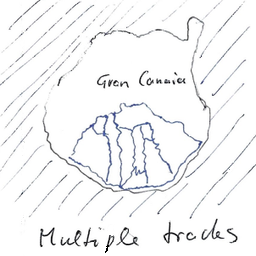 Gran Canaria
Multiple tracks